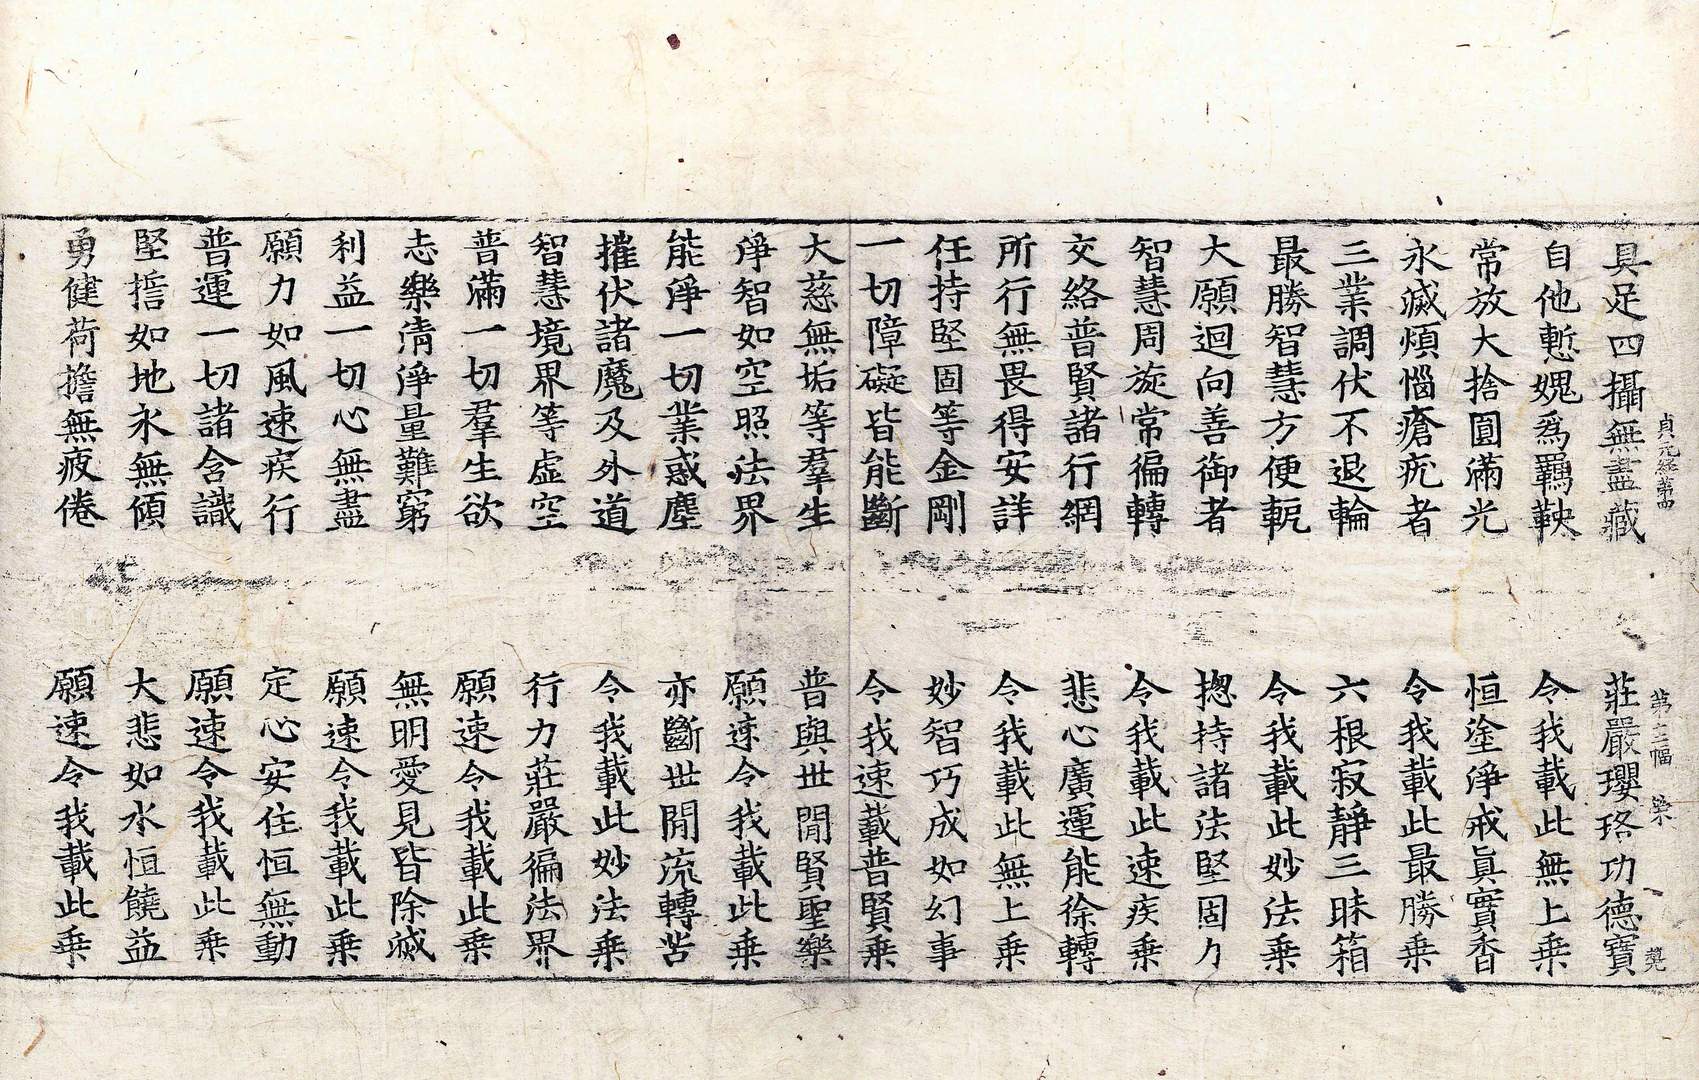 貞元経第四 幅 染
具足四攝無盡藏 莊嚴瓔珞功德寶
自他慙媿爲羈鞅 令我載此無上乗
常放大捨圓滿光 恒塗淨戒眞實香
永滅煩惱瘡疣者 令我載此最勝乗
三業調伏不退輪 六根寂靜三昧箱
最勝智慧方便軛 令我載此妙法乗
大願迴向善御者 揔持諸法堅固力
智慧周旋常徧轉 令我載此速疾乗
交絡普賢諸行網 悲心廣運能徐轉
所行無畏得安詳 令我載此無上乗
任持堅固等金剛 妙智巧成如幻事
一切障礙皆能斷 令我速載普賢乗
大慈無垢等羣生 普與世閒賢聖樂
淨智如空照法界 願速令我載此乗
能淨一切業惑塵 亦斷世閒流轉苦
摧伏諸魔及外道 令我載此妙法乗
智慧境界等虛空 行力莊嚴徧法界
普滿一切羣生欲 願速令我載此乗
志樂清淨量難窮 無明愛見皆除滅
利益一切心無盡 願速令我載此乗
願力如風速疾行 定心安住恒無動
普運一切諸含識 願速令我載此乗
堅擔如地永無傾 大悲如水恒饒益
勇健荷擔無疲倦 願速令我載此乗